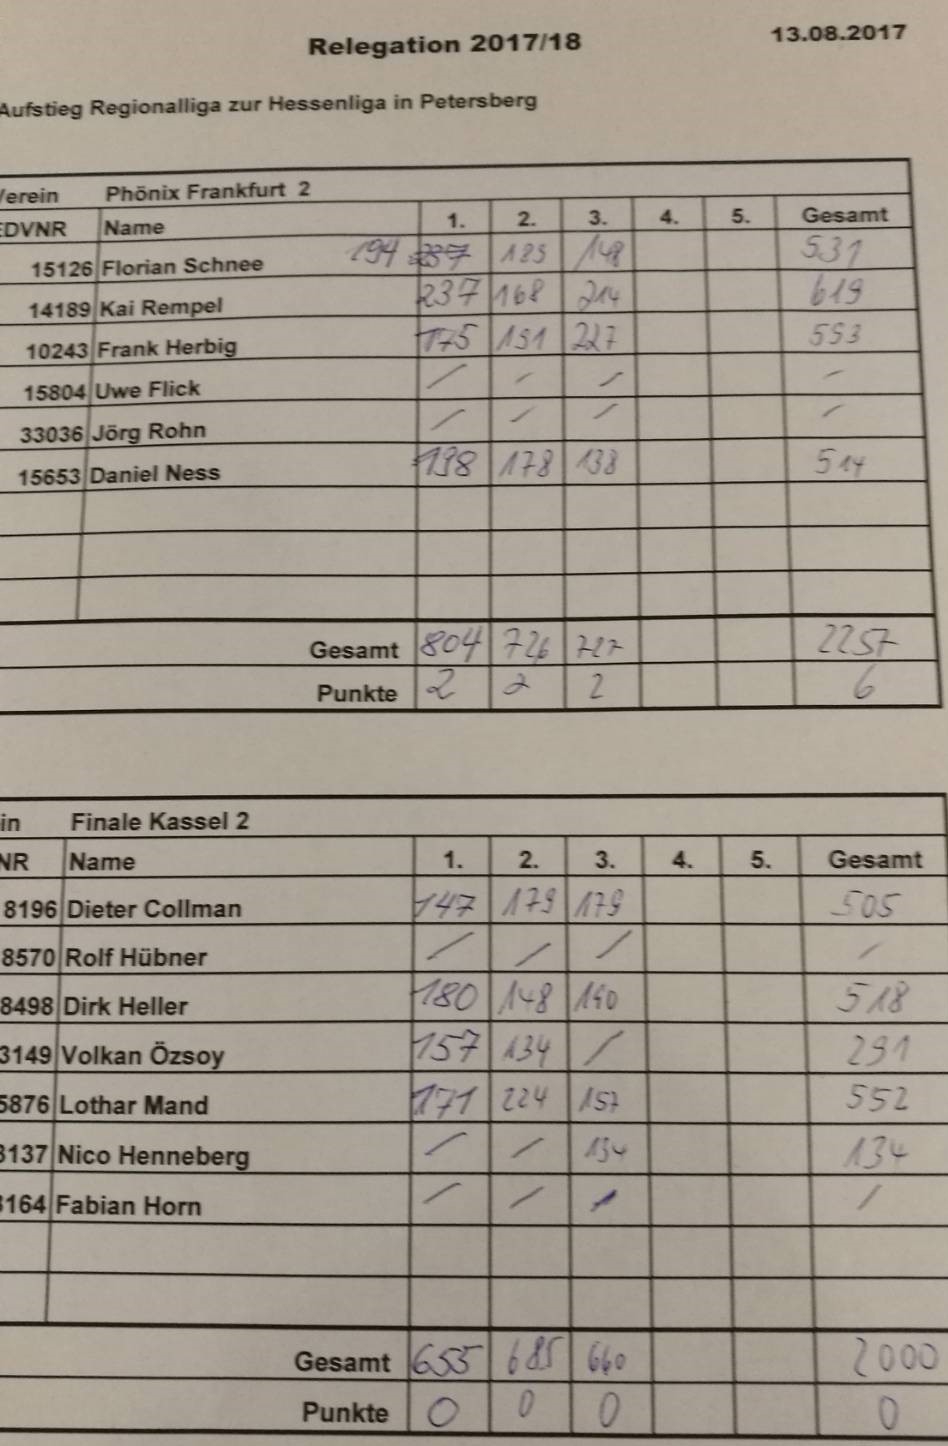 Relegation 2017/18 13.08.2017
Aufstieg Regionalliga zur Hessenliga in Petersberg
Verein Phönix Frankfurt 2
EDVNR Name 1. 2. 3. 4. 5. Gesamt
15126 Florian Schnee 194 237 189 148 531
14189 Kai Rempel 237 168 214 619
10243 Frank Herbig 175 191 227 593
15804 Uwe Flick / / / /
33036 Jörg Rohn / / / /
15653 Daniel Ness 198 178 138 514
Gesamt 804 726 727 2257
Punkte 2 2 2 6
in Finale Kassel 2
NR Name 1. 2. 3. 4. 5. Gesamt
8196 Dieter Collman 147 179 179 505
8570 Rolf Hübner / / / /
8498 Dirk Heller 180 148 190 518
3149 Volkan Özsoy 157 134 / 291
5876 Lothar Mand 171 224 157 552
3137 Nico Henneberg / / 134 134
3164 Fabian Horn / / / /
Gesamt 655 685 660 2000
Punkte 0 0 0 0